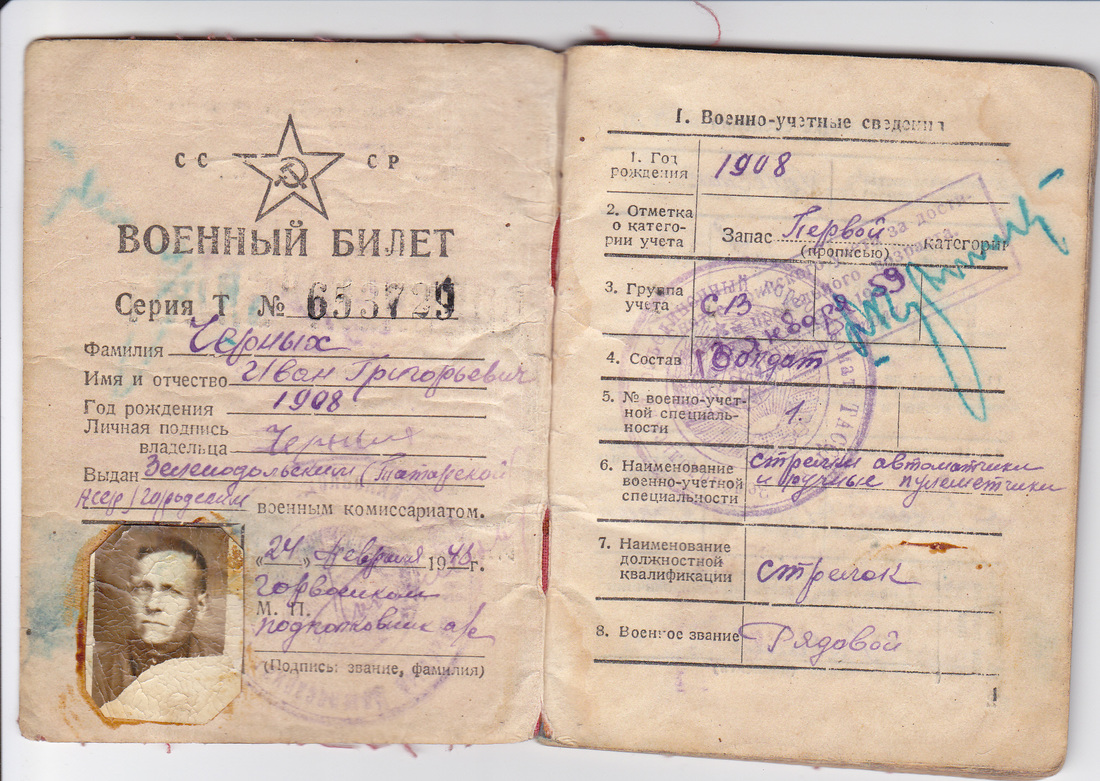 СССР
ВОЕННЫЙ БИЛЕТ
Серия Т № 653729
Фамилия Черных
Имя и отчество Иван Григорьевич
Год рождения 1908
Личная подпись
владельца Черных
Выдан Зеленодольским (Татарской
АССР) городским военным комиссариатом.
„24„ февраля 1948 г.
горвоенком
М. П.
подполковник а/с
(Подпись: звание, фамилия)
I. Военно-учетные сведения
1. Год
рождения 1908
2. Отметка
о катего-
рии учета Запас Первой категории
(прописью)
3. Группа
учета СВ
4. Состав Солдат
5. № военно-учет-
ной специаль-
ности 1.
6. Наименование
военно-учетной
специальности стрелки автоматчики
и ручные пулеметчики
7. Наименование
должностной
квалификации стрелок
8. Военное звание Рядовой
учета за дости-
возраста.
января 59
1